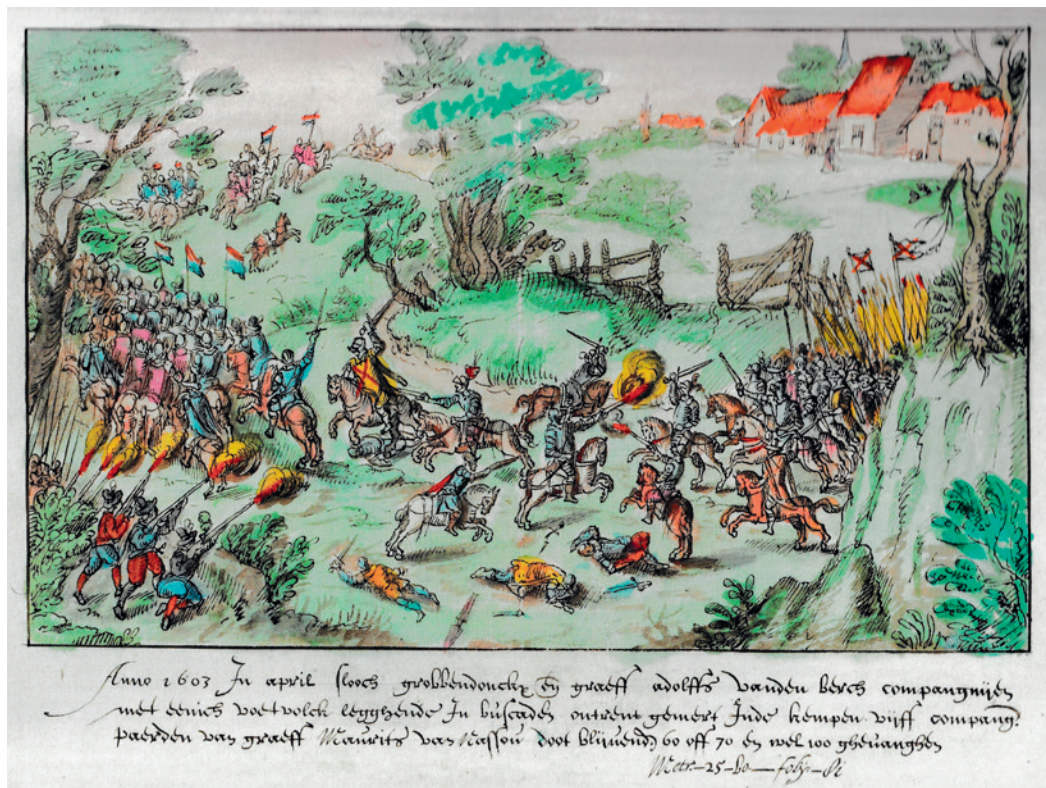 Anno 1603 In april slooch grobbendonck en graeff adolffs vanden berch compangnijen
met eenich voetvolck legghende In buscaden ontrent gemert Inde kempen vijff compang:
paerden van graeff Maurits van Nassou doot blijvende 60 off 70 en wel 100 ghevanghen
Metr–25–